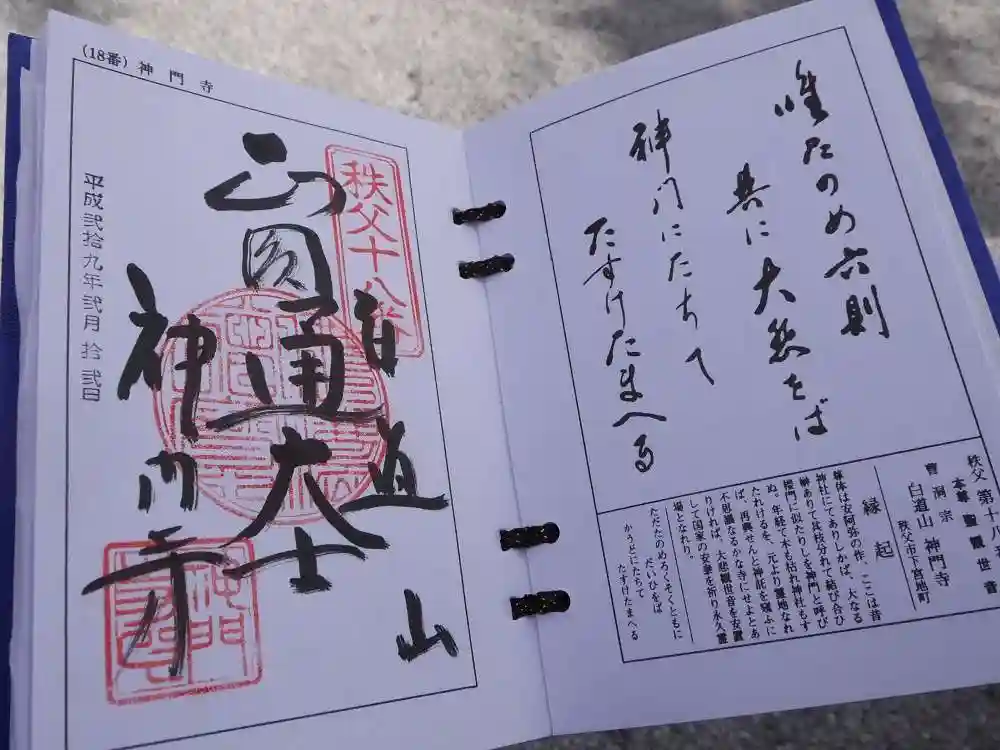 唯たのめ六則
共に大悲をば
神門にたちて
たすけたまへる
秩父 第十八
本尊 聖觀世音
曹洞宗
白道山 神門寺
秩父市下宮地町
縁起
尊体は安阿弥の作、ここは昔
神社にてありしかば、大なる
榊ありて其枝分れて結び合ひ
楼門に似たりしを神門と呼び
ぬ。年経て木も枯れ神社もす
たれけるを、元より霊地なれ
ば、再興せんと神託を窺ふに
不思議なるかな寺にせよとあ
りければ、大悲観世音を安置
して国家の安泰を祈り永久霊
場となれり。
ただたのめろくそくともに
だいひをば
かうどにたちて
たすけたまへる
(18番) 神門寺
秩父十八番
白道山
圓通大士
神門寺
平成弐拾九年弐月拾弐日